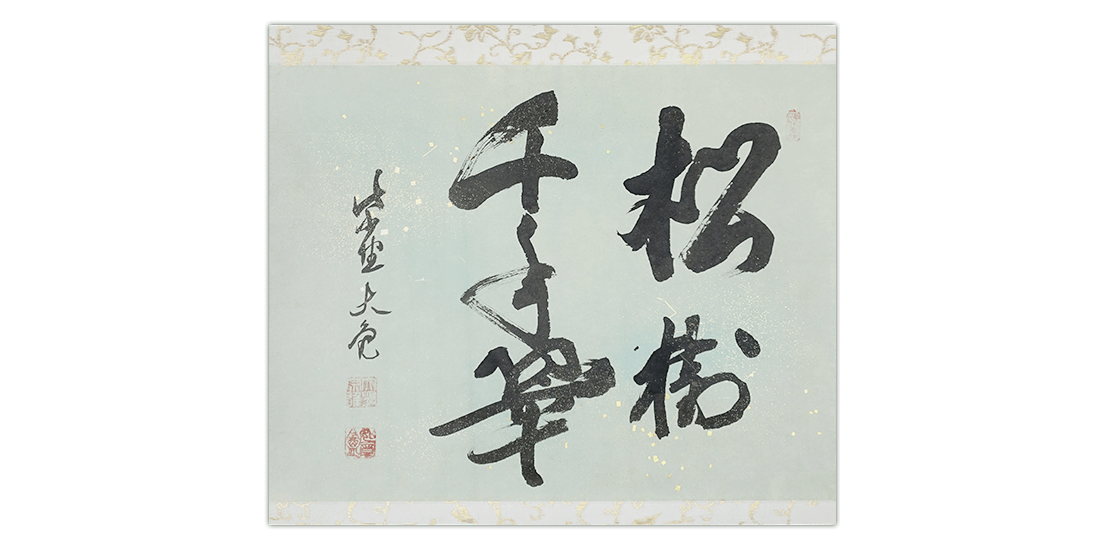 松樹
千年翠
紫野大亀